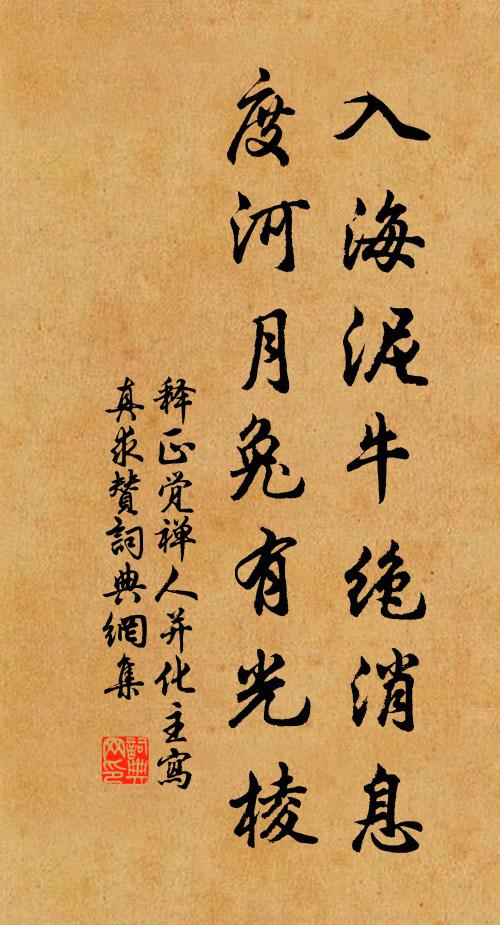 入海泥牛绝消息
度河月兔有光棱
释正觉禅人并化主写
真求赞詞典網集
詞典
网印